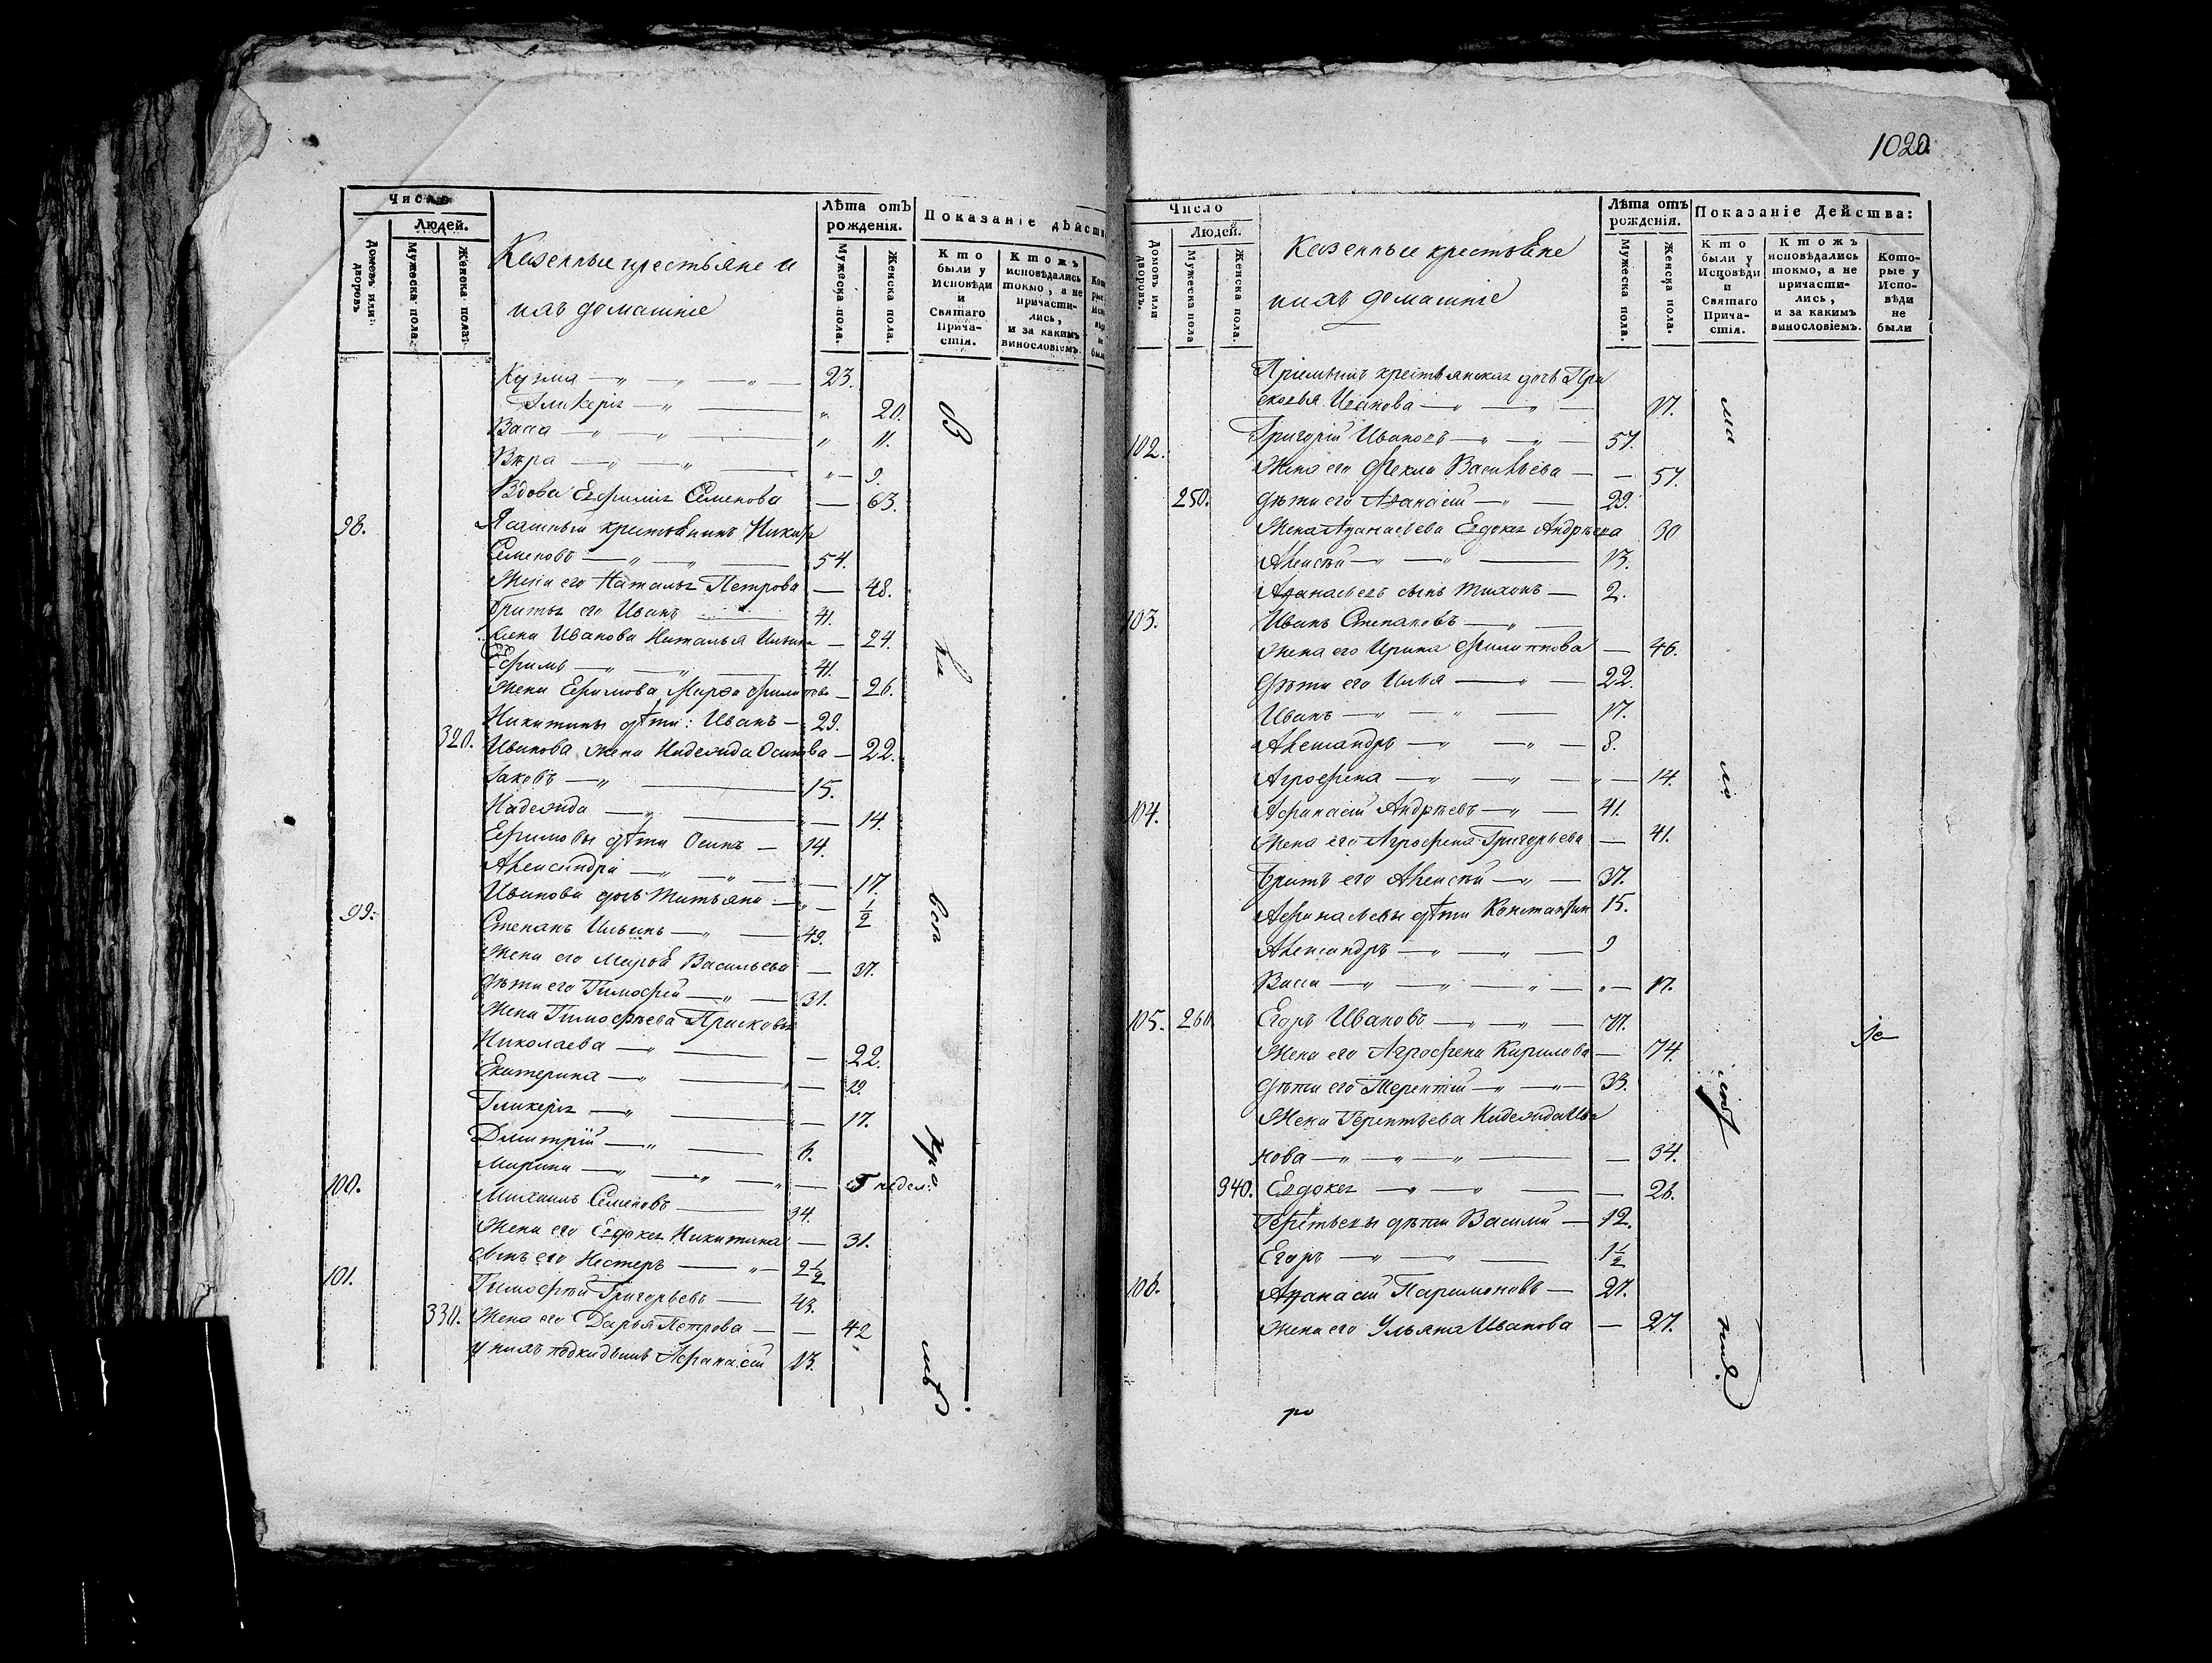 1020.
Число
Людей.
Домовъ или дворовъ
Мужеска пола.
Женска пола.
Казенные крестьяне и
ихъ домашніе
Лѣта отъ рожденія.
Мужеска пола.
Женска пола.
Показаніе дѣйств
Кто были у Исповѣди и Святаго Прича-стія.
Ктожъ исповѣдались токмо, а не причасти-лись, и за какимъ винословіемъ.
Кузма 23.
Гликерія 20.
Васса 11.
Вѣра 9.
Вдова Евфимія Семенова 63.
98. Ясашный крестьянинъ Никита
Семеновъ 54.
Жена его Наталья Петрова 48.
Братья его Иванъ 41.
Жена Иванова Наталья 24.
Ефимъ 41.
Жена Ефимова Марфа 26.
Никитины дѣти: Иванъ 29.
320. Иванова жена Надежда Осипова 22.
Іаковъ 15.
Надежда 14.
Ефимовы дѣти Осипъ 14.
Александра 17.
Иванова дочь Татьяна ½
99. Степанъ Ильинъ 49.
Жена его Марфа Васильева 37.
Дѣти его Тимофей 31.
Жена Тимофѣева Прасковья
Николаева 22.
Екатерина 19.
Гликерія 17.
Дмитрій 6.
Марина 5 недел:
100. Михаилъ Семеновъ 34.
Жена его Евдокія Никитина 31.
Сынъ его Нестеръ 2½
101. Тимофѣй Григорьевъ 43.
330. Жена его Дарья Петрова 42
у нихъ подкидышъ Афанасій 13.
Число
Людей.
Домовъ или дворовъ.
Мужеска пола
Женска пола.
Казенные крестьяне
и ихъ домашніе
Лѣта отъ рожденія.
Мужеска пола.
Женска пола.
Показаніе Дейсшва:
Кто были у Исповѣди и Святаго Прича-стія.
Ктожъ исповѣдались токмо, а не причасти-лись, и за какимъ винословіемъ.
Кото-рые у Испо-вѣди не были
Пріемышъ крестьянская дочь Пра
сковья Иванова 17.
102. Григорій Ивановъ 57.
Жена его Фекла Васильева 57.
250. Дѣти его Афанасій 29.
Жена Афанасьева Евдокія Андрѣева 30
Алексѣй 13.
Афанасьевъ сынъ Тихонъ 2.
103. Иванъ Степановъ
Жена его Ирина Филиппова 46.
Дѣти его Илья 22.
Иванъ 17.
Александръ 8.
Агрофена 14.
104. Афанасій Андрѣевъ 41.
Жена его Агрофена Григорьева 41.
Братъ его Алексѣй 37.
Афанасьевы дѣти Константин 15.
Александръ 9
Васса 17.
105. 260 Егоръ Ивановъ 77.
Жена его Агрофена Кирилова 74.
Дѣти его Терентій 33.
Жена Терентьева Надежда Ива
нова 34.
340. Евдокія 26.
Терентьевы дѣти Василій 12.
Егоръ 1½
106. Афанасій Парамоновъ 27.
Жена его Ульяна Иванова 27.